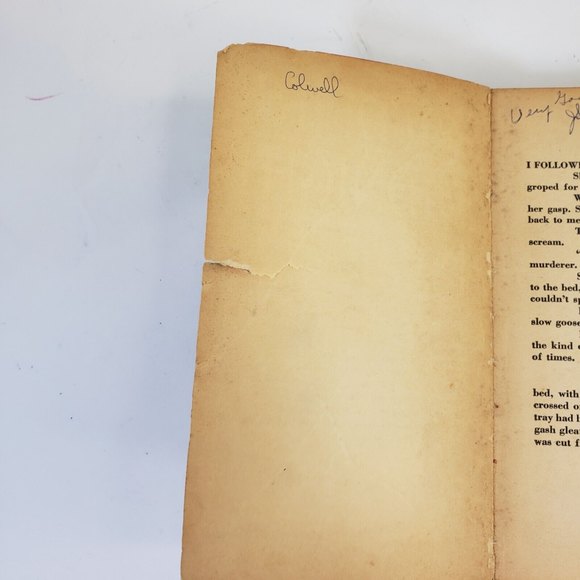 Colwell
Very
I FOLLOW
groped for
her gasp. S
back to me
scream.
murderer.
to the bed,
couldn't sp
slow goose
the kind
of times.
bed, with
crossed o
tray had
gash glea
was cut f